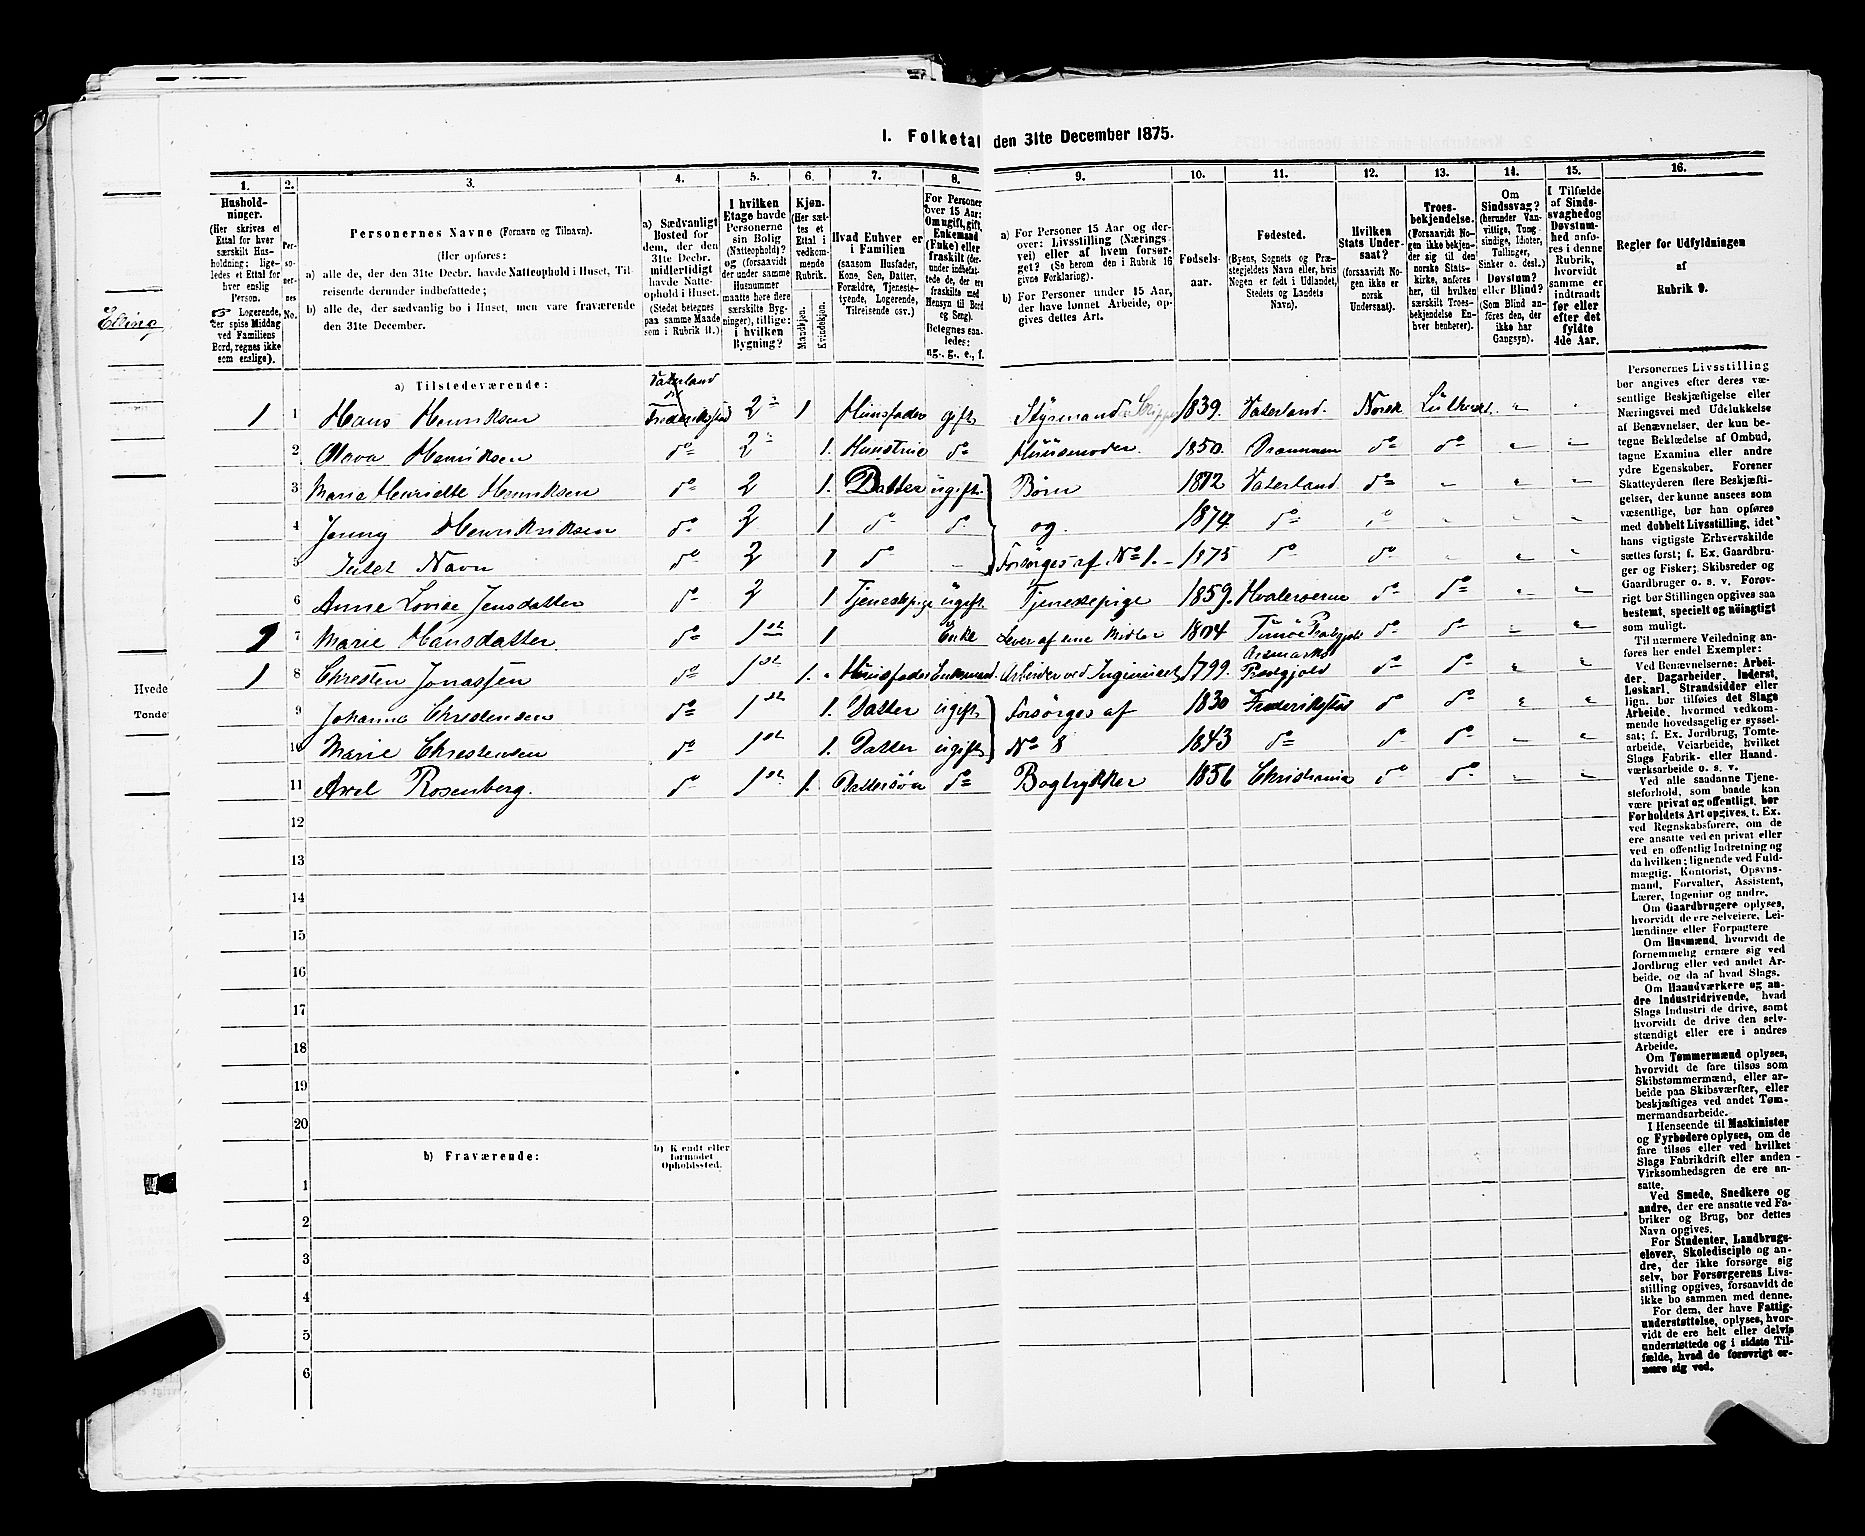 I. Folketal den 31te December 1875.
1. 2. 3. 4. 5. 6. 7. 8. 9. 10. 11. 12. 13. 14. 15. 16.
Husholdninger.
(Her skrives et Ettal for hver særskilt Husholdning; ligeledes et Ettal for hver enslig Person.
☞ Logerende, der spise Middag ved Familiens Bord, regnes ikke som enslige).
Personernes No.
Personernes Navne (Fornavn og Tilnavn).
(Her opføres:
a) alle de, der den 31te Decbr. havde Natteophold i Huset, Tilreisende derunder indbefattede;
b) alle de, der sædvanlig bo i Huset, men vare fraværende den 31te December.
a) Sædvanligt Bosted for dem, der den 31te Decbr. midlertidigt havde Natteophold i Huset. (Stedet betegnes paa samme Maade som i Rubrik 11.)
I hvilken Etage havde Personerne sin Bolig (Natteophold)? og (forsaavidt der under samme Husnummer maatte høre flere særskilte Bygninger), tillige: i hvilken Bygning?
Kjøn. (Her sættes et Ettal i vedkommende Rubrik.
Mandkjøn. Kvindekjøn.
Hvad Enhver er i Familien
(saasom Husfader, Kone, Søn, Datter, Forældre, Tjenestetyende, Logerende, Tilreisende osv.)
For Personer over 15 Aar: Om ugift, gift, Enkemand (Enke) eller fraskilt (derunder indbefattede de, der ere fraskilte med Hensyn til Bord og Seng). Betegnes saaledes: ug., g., e., f.
a) For Personer 15 Aar og derover: Livsstilling (Næringsvei) eller af hvem forsørget? (Se herom den i Rubrik 16 givne Forklaring).
b) For Personer under 15 Aar, der have lønnet Arbeide, opgives dettes Art.
Fødselsaar.
Fødested.
(Byens, Sognets og Præstegjeldets Navn eller, hvis Nogen er født i Udlandet, Stedets og Landets Navn).
Hvilken Stats Undersaat?
(forsaavidt Nogen ikke er norsk Undersaat).
Troesbekjendelse.
(Forsaavidt Nogen ikke bekjender sig til den norske Statskirke, anføres her, til hvilken særskilt Troesbekjendelse Enhver henhører).
Om Sindssvag? (herunder Vanvittige, Tungsindige, Idioter, Tullinger, Sinker o. desl.) Døvstum? eller Blind? (Som Blind anføres den, der ikke har Gangsyn).
I Tilfælde af Sindssvaghed og Døvstumhed anføres i denne Rubrik, hvorvidt samme er indtraadt før eller efter det fyldte 4de Aar.
Regler for Udfyldningen af Rubrik 9.
a) Tilstedeværende:
Vaterland
1 1 Hans Henriksen Frederikstad 2 1 Huusfader gift Styrmand 1839. Vaterland. Norsk
2 Olava Henriksen do 2 1. Huustrue do Huusmoder 1850. Drammen do do
3 Marie Henriette Henriksen do 2 1. Datter ugift Børn 1872 Vaterland do
4 Jenny Henrikriksen do 2 1 do do og 1874 do do
5 Intet Navn do 2 1 do Forsørges af No 1. 1875 do do
6 Anne Lovise Jensdatter do 2 1 Tjenestepige ugift Tjenestepige 1859. Hvaløerne do do
7 Marie Hansdatter do 1ste 1 Enke Lever af sine Midler 1804 do do
1 8 Chresten Jonassen do 1ste 1. Huusfader Enkemand. 1799. Aremarks Præstgjeld do do
9 Johanne Chrestensen do 1ste 1. Datter ugift Forsørges af 1830 Frederikstad do do
10 Marie Chrestensen do 1ste 1. Datter ugift No 8 1843 do do do
11 Axel Rosenberg. do 1ste 1. Dattersøn do Bogtrykker 1856 Christiania do do
12
13
14
15
16
17
18
19
20
b) Fraværende:
b) Kjendt eller formodet Opholdssted.
1
2
3
4
5
6
Personernes Livsstilling bør angives efter deres væsentlige Beskjæftigelse eller Næringsvei med Udelukkelse af Benævnelser, der kun betegne Beklædelse af Ombud, tagne Examina eller andre ydre Egenskaber. Forener Skatteyderen flere Beskjæftigelser, der kunne ansees som væsentlige, bør han opføres med dobbelt Livsstilling, idet hans vigtigste Erhvervskilde sættes først; f. Ex. Gaardbruger og Fisker; Skibsreder og Gaardbruger o. s. v. Forøvrigt bør Stillingen opgives saa bestemt, specielt og nøiagtigt som muligt.
Til nærmere Veiledning anføres her endel Exempler:
Ved Benævnelserne: Arbeider, Dagarbeider, Inderst, Løskarl, Strandsidder eller lign. bør tilføies det Slags Arbeide, hvormed vedkommende hovedsagelig er sysselsat; f. Ex. Jordbrug, Tomtearbeide, Veiarbeide, hvilket Slags Fabrik- eller Haandværksarbeide o. s. v.
Ved alle saadanne Tjenesteforhold, som baade kan være privat og offentligt, bør Forholdets Art opgives, t. Ex. ved Regnskabsførere, om de ere ansatte ved en privat eller ved en offentlig Indretning og da hvilken; lignende ved Fuldmægtig, Kontorist, Opsynsmand, Forvalter, Assistent, Lærer, Ingeniør og andre.
Om Gaardbrugere oplyses, hvorvidt de ere Selveiere, Leilændinge eller Forpagtere
Om Husmænd, hvorvidt de fornemmelig ernære sig ved Jordbrug eller ved andet Arbeide, og da af hvad Slags.
Om Haandværkere og andre Industridrivende, hvad Slags Industri de drive, samt hvorvidt de drive den selvstændigt eller ere i andres Arbeide.
Om Tømmermænd oplyses, hvorvidt de fare tilsøs som Skibstømmermænd, eller arbeide paa Skibsværfter, eller beskjæftiges ved andet Tømmermandsarbeide.
I Henseende til Maskinister og Fyrbødere oplyses, om de fare tilsøs eller ved hvilket Slags Fabrikdrift eller anden Virksomhedsgren de ere ansatte.
Ved Smede, Snedkere og andre, der ere ansatte ved Fabriker og Brug, bør dettes Navn opgives.
For Studenter, Landbrugselever, Skoledisciple og andre, der ikke forsørge sig selv, bør Forsørgerens Livsstilling opgives, forsaavidt de ikke bo sammen med denne.
For dem, der have Fattigunderstøttelse, oplyses, hvorvidt de ere helt eller delvis understøttede og i sidste Tilfælde, hvad de forøvrigt ernære sig ved.
Hvede
Tønder